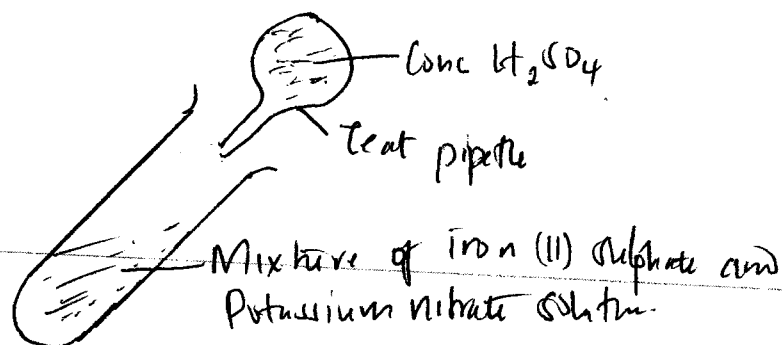 Conc H₂SO₄
teat pipette
Mixture of iron (II) sulphate and
Potassium nitrate solution.